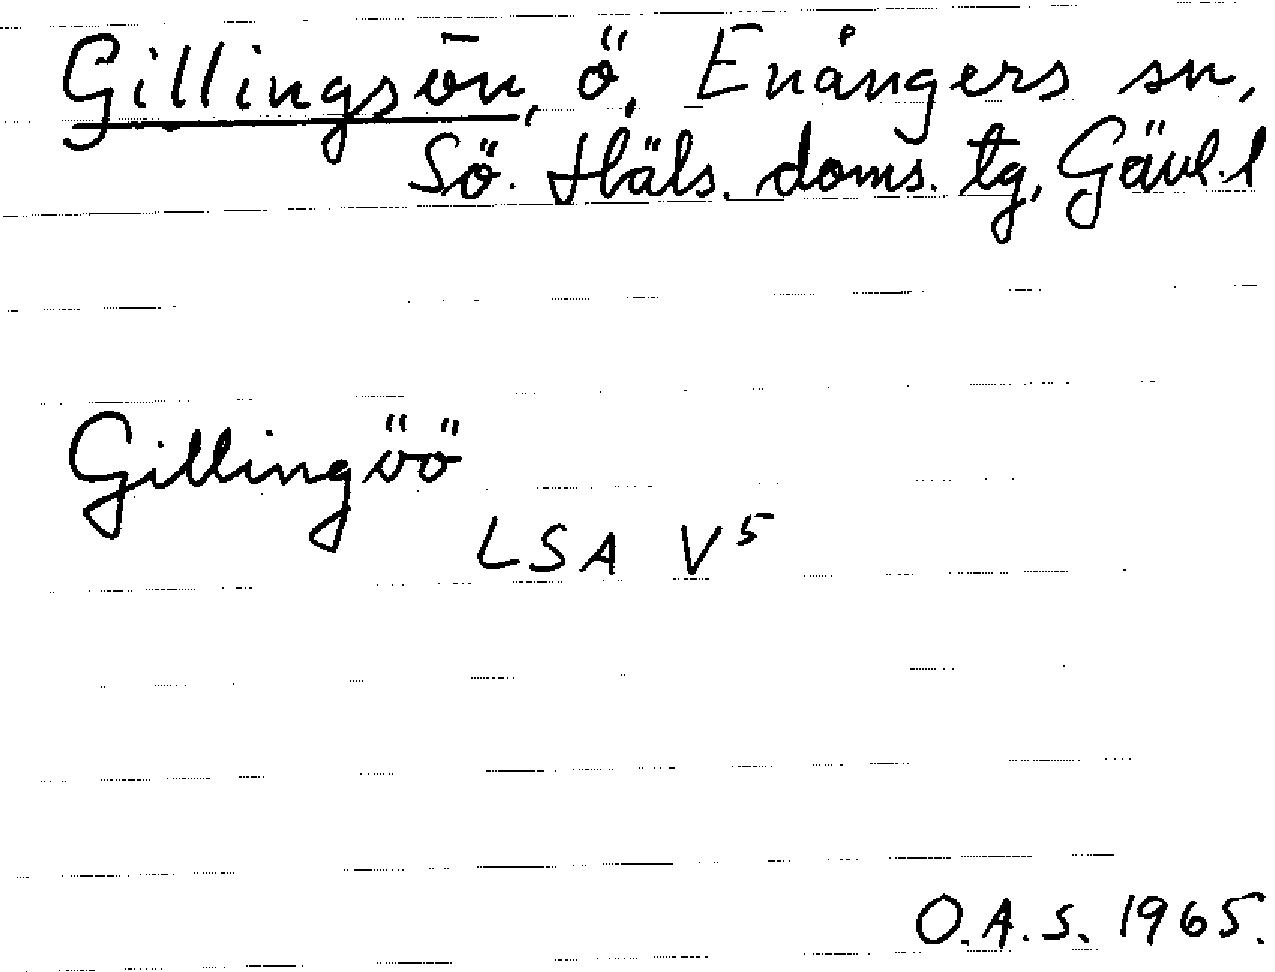 Gillingsön, ö, Enångers sn,
Sö. Häls. doms. tg, Gävl. l
Gillingöö
LSA V5
O.A.S. 1965.